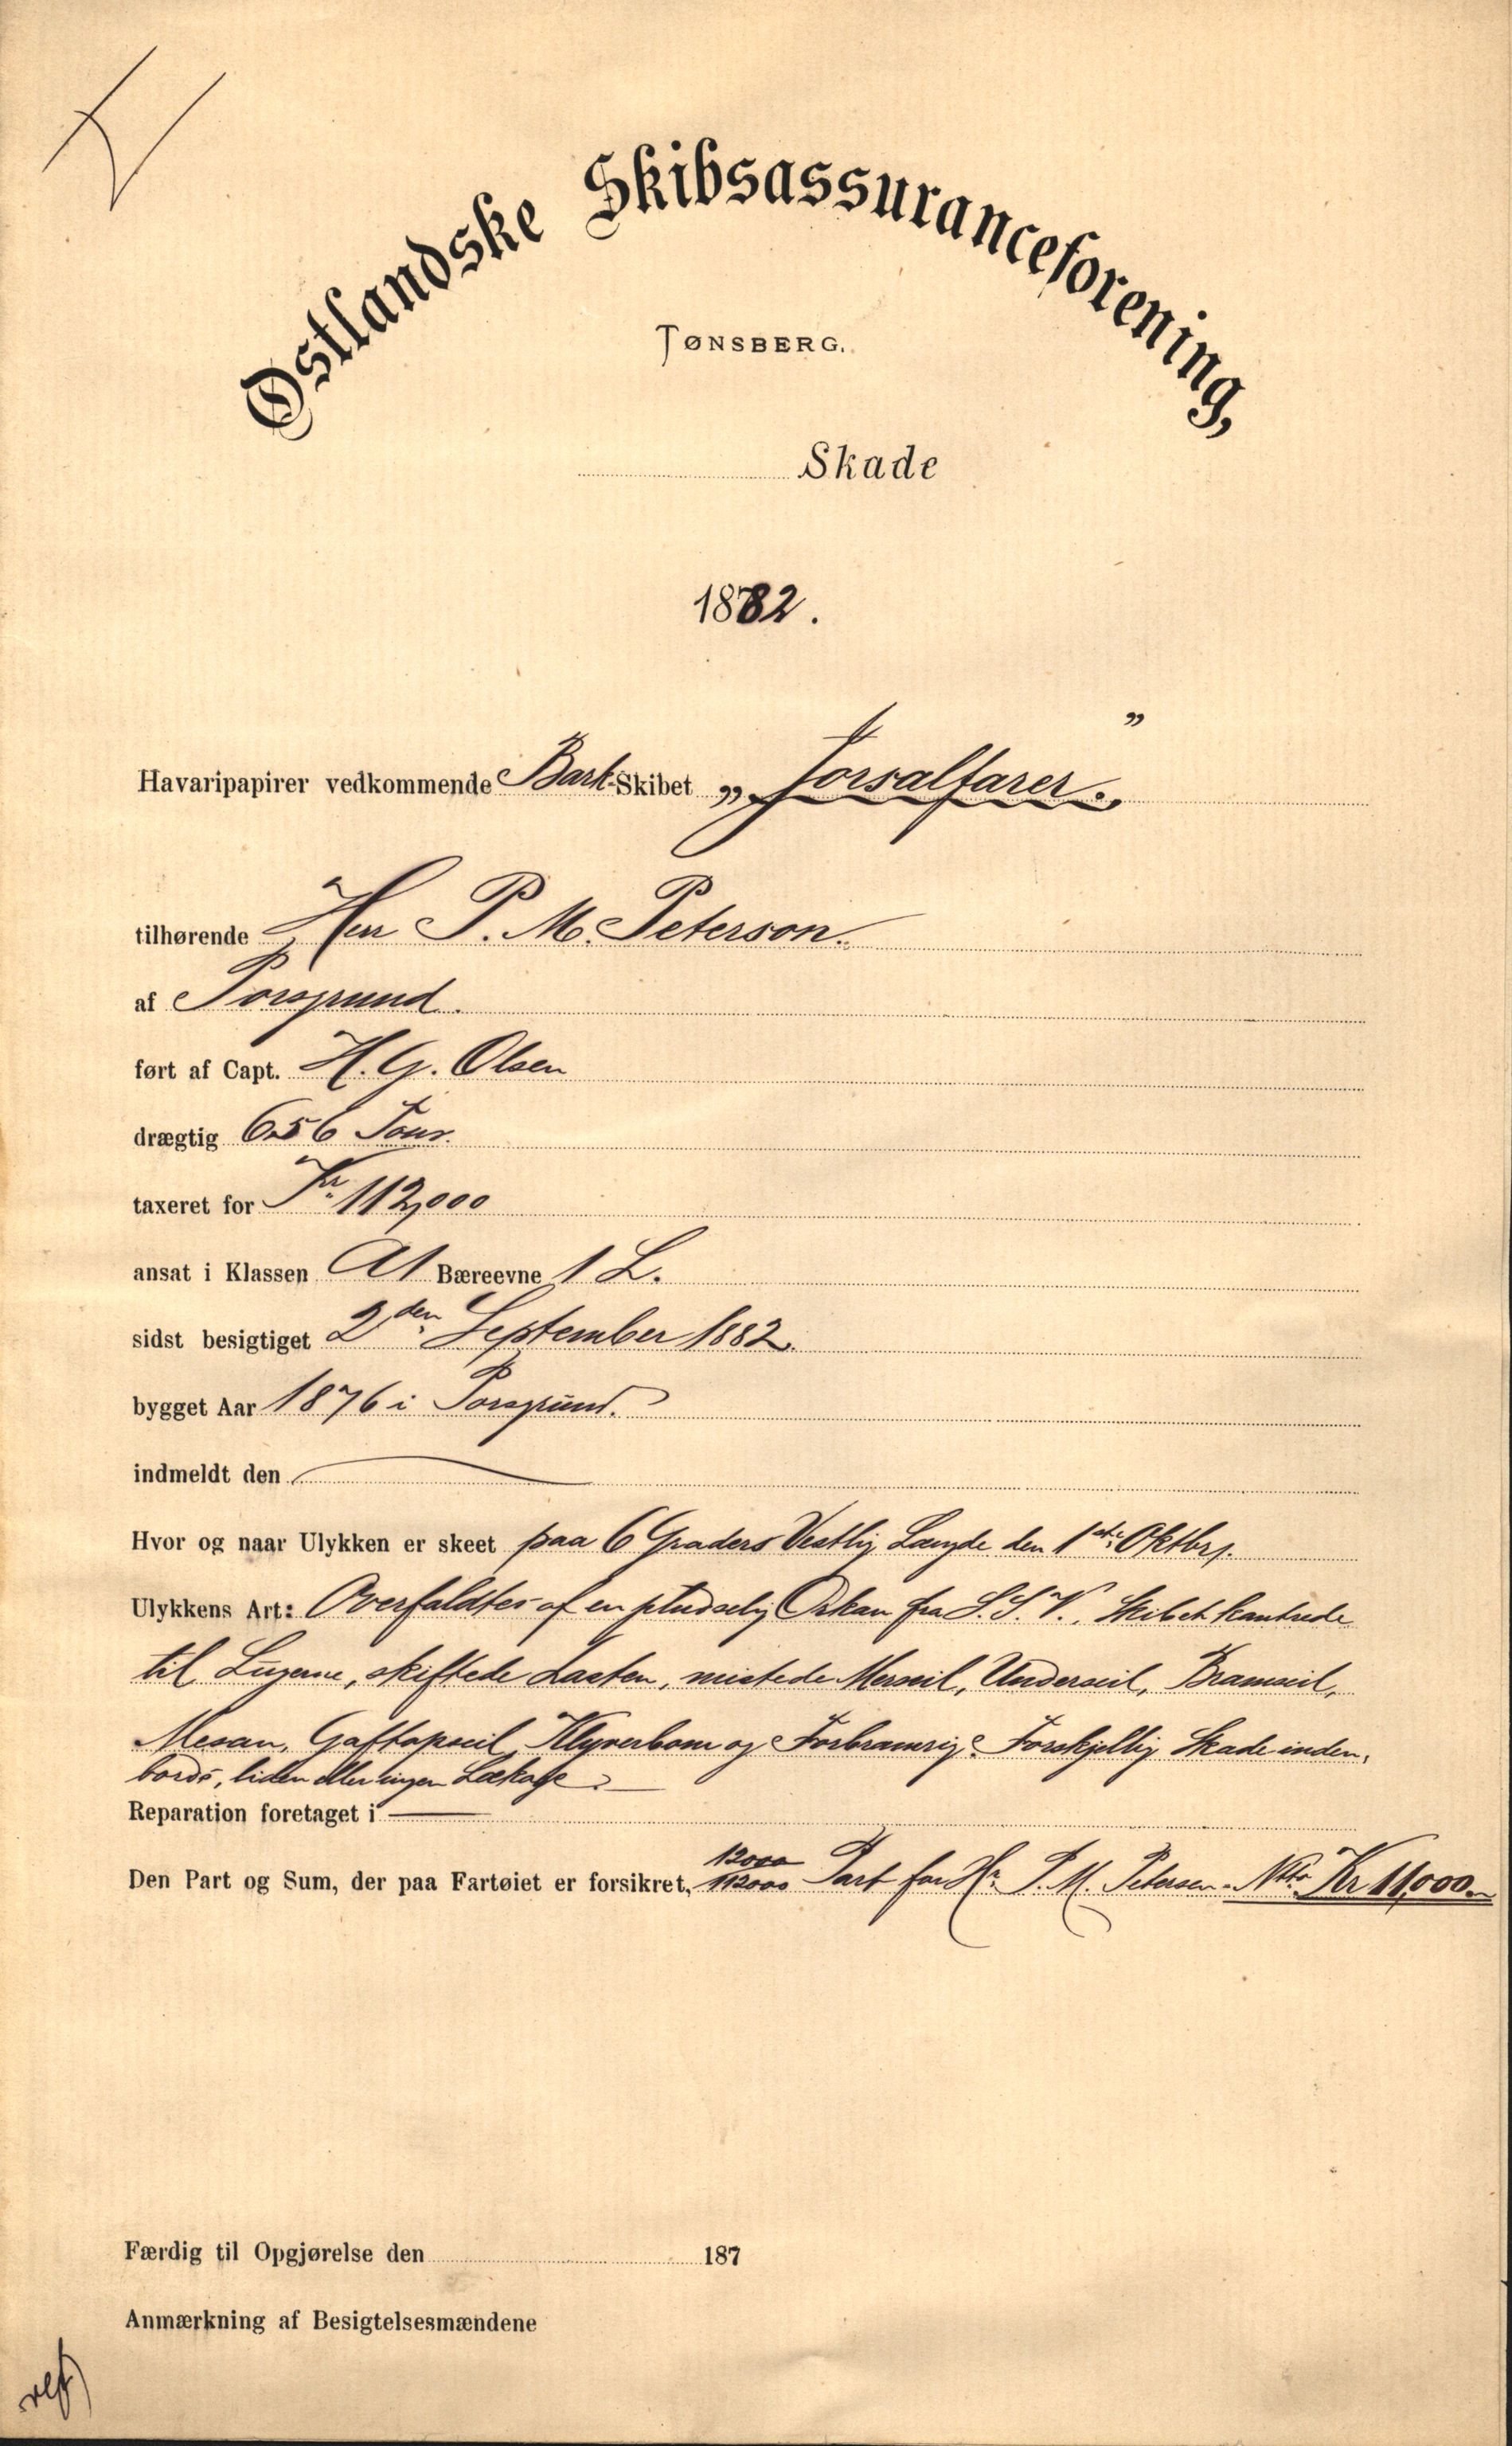 Østlandske Skibsassuranceforening,
TØNSBERG.
Skade
1882.
Havaripapirer vedkommende Bark-Skibet „Jorsalfarer.”
tilhørende Herr P. M. Peterson.
af Porsgrund.
ført af Capt. H. G. Olsen
drægtig 656 Tons.
taxeret for Kr. 112,000
ansat i Klassen A1 Bæreevne 1 L.
sidst besigtiget 2den September 1882.
bygget Aar 1876 i Porsgrund.
indmeldt den
Hvor og naar Ulykken er skeet paa 6 Graders Vestlig Længde den 1ste Oktbr.
Ulykkens Art: Overfaldtes af en pludselig Orkan fra S.S.V. Skibet kantrede
til Lugerne, skiftede Lasten, mistede Merseil, Underseil, Bramseil,
Mesan, Gaffapseil, Klyverbom og Forbramrig. Forskjellig Skade inden-
bords, liden eller ingen Lækage.
Reparation foretaget i
Den Part og Sum, der paa Fartøiet er forsikret, 12000/112000 Part for Hr. P. M. Petersen. Ntto. Kr 11,000.
Færdig til Opgjørelse den 187
Anmærkning af Besigtelsesmændene